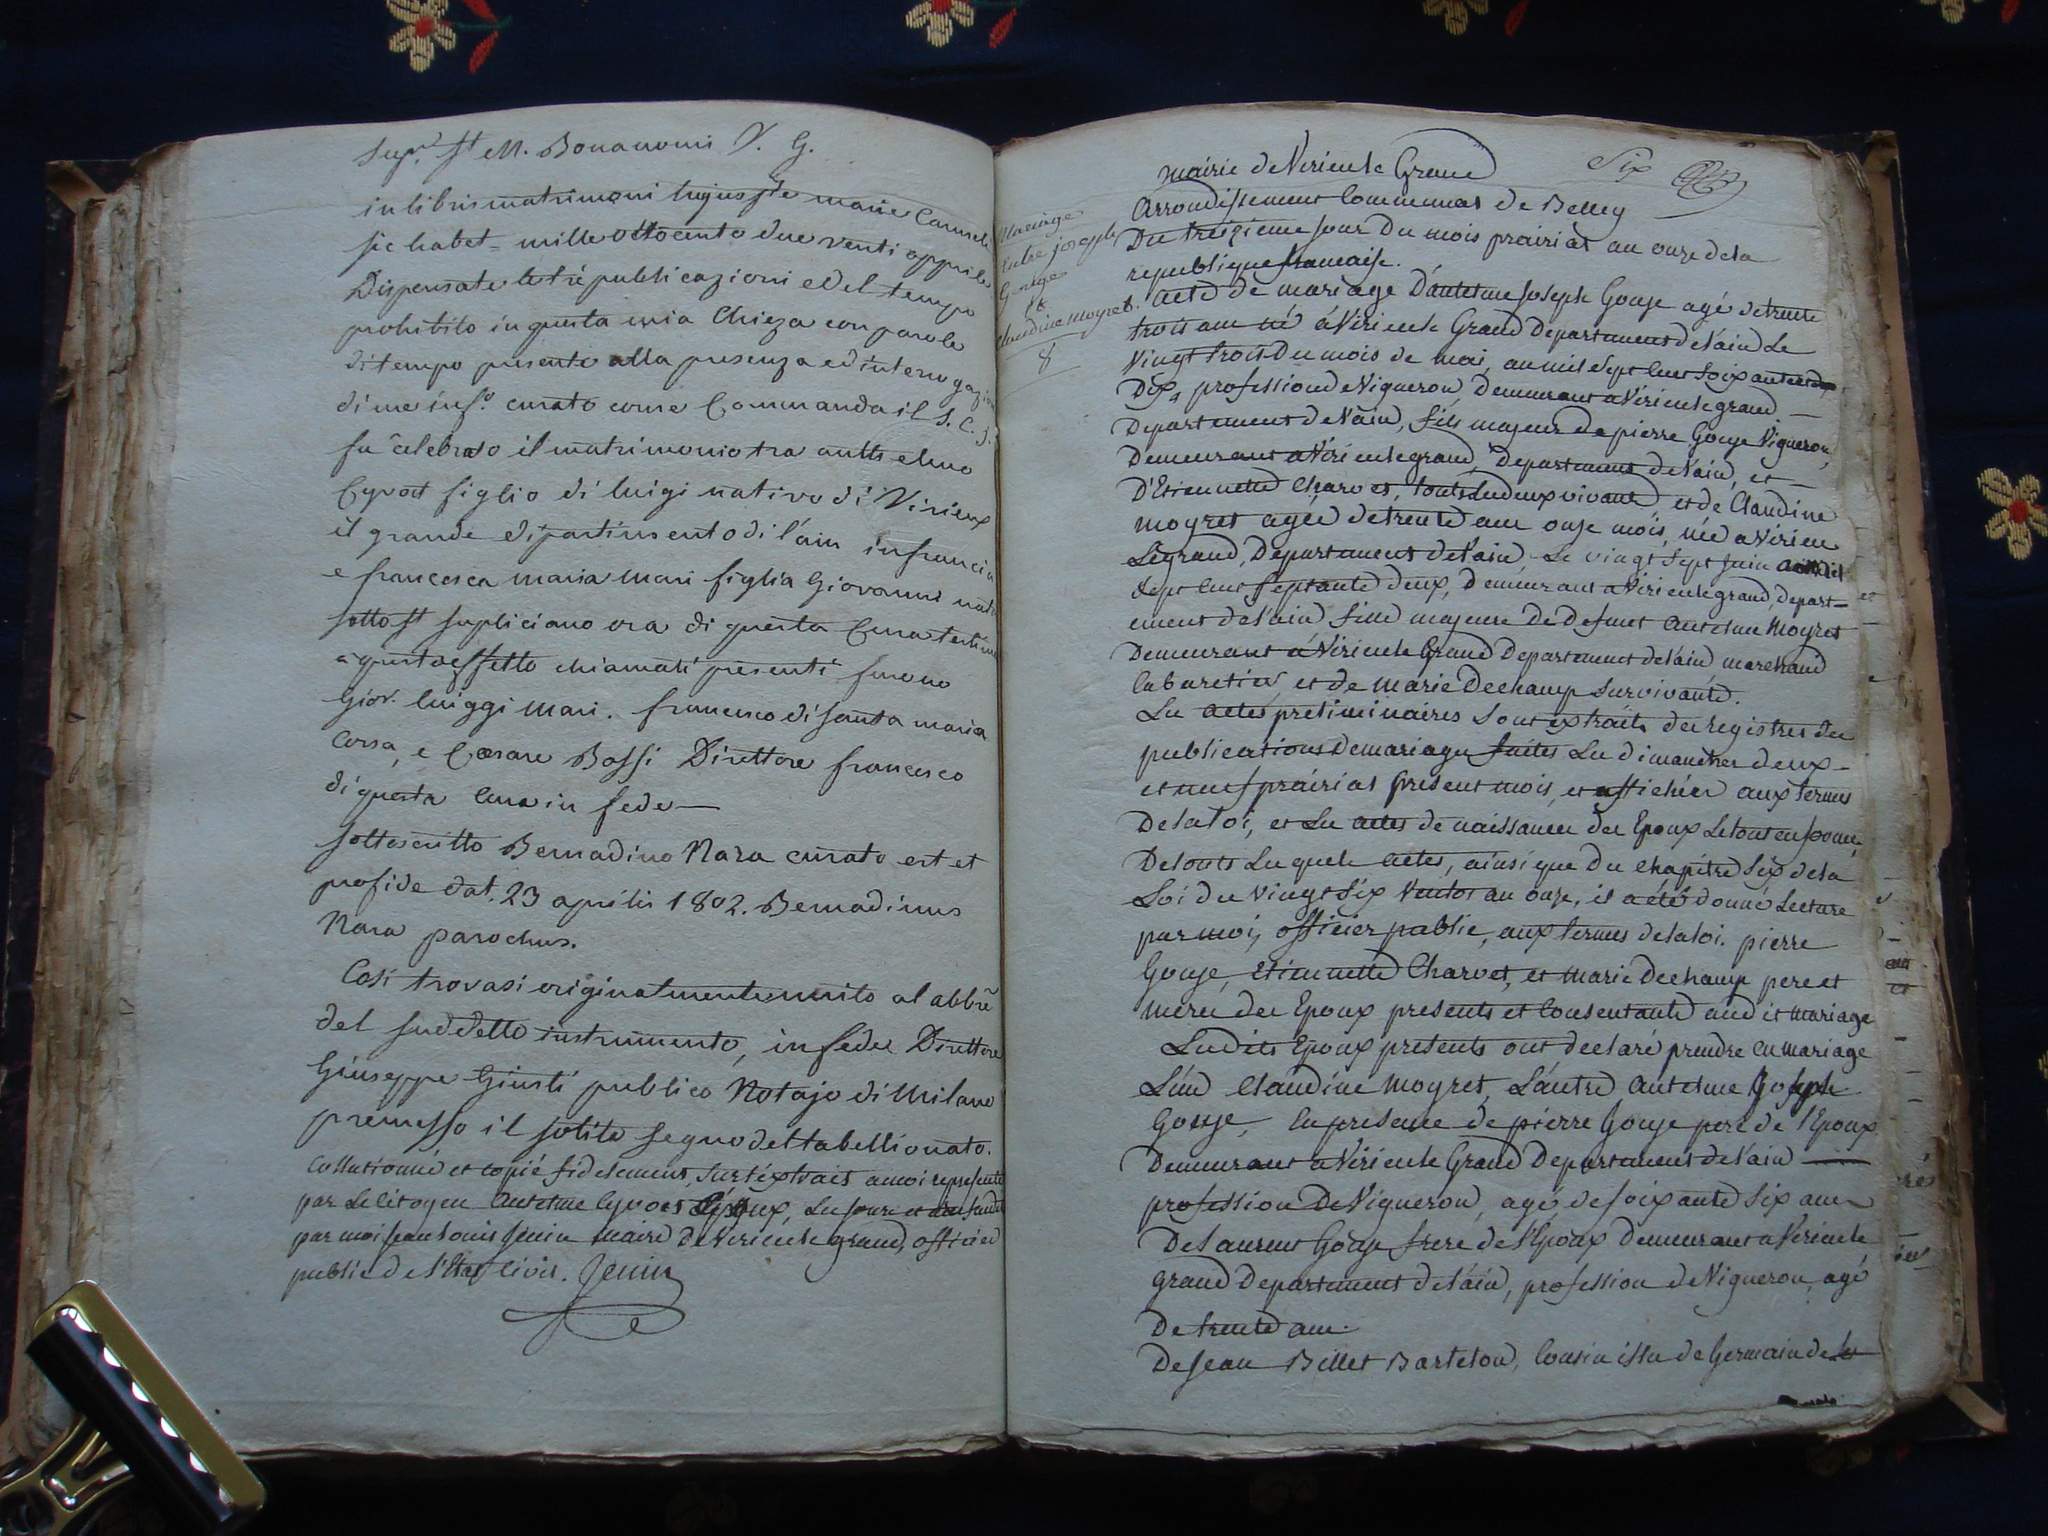 M. Bonanomi V. G.
in libris matrimoni hujus marie
sic habet = mille ottocento due venti apprile
Dispensate le tre publicazioni e del tempo
prohibito in questa mia Chieza con parole
di tempo presente alla presenza ed interrogazion
di me inf.o curato come Commanda il S. C.
fu celebrato il matrimonio tra anthelmo
Cyvoct figlio di luigi nativo di Virieux
il grande dipartimento di l'ain in francia
e francesca maria mari figlia Giovanni
sotto st supliciano ora di questa Cura
a questo effetto chiamati presenti furono
Giov. luiggi mari. francesco di santa maria
Corsa, e Cæsare Bossi Direttore francesco
di questa Cura in fede —
sottoscritto Bernadino Nara curato est et
pro fide dat. 23 aprilis 1802. Bernadinus
Nara parochus.
Cosi trovasi originalmente unito al abbrẽ
del suddetto instrumento, in fede Direttore
Giuseppe Giusti publico Notajo di Milano
premesso il solito segno del tabellionato.
Collationné et copié fidelement, sur l'extrait a moi representé
par le Citoyen Antelme Cyvoct Epoux, les jour et an susdit
par moi jean louis Jenin maire de Virieu le grand, officier
public de l'Etat Civil. Jenin
Mariage
Entre joseph
Gonge
&
Claudine Moyret.
8
Mairie de Virieu le Grand
Six
Arrondissement Communal de Belley
Du treizieme jour du mois prairial an onze de la
republique francaise.
Acte de mariage D'antelme Joseph Gouje agé de trente
trois ans né à Virieu le Grand Departement de l'ain Le
Vingt trois du mois de mai, an mil Sept Cent Soixante et
Dix, profession de Vigneron, Demeurant a Virieu le grand. —
Departement de l'ain, fils majeur de pierre Gouje Vigneron,
Demeurant a Virieu le grand, Departement de l'ain, et —
D'Etiennette Charvet, touts Les deux vivants, et de Claudine
Moyret agée de trente ans onze mois, née a Virieu
Le grand, Departement de l'ain, Le vingt Sept Juin mil
Sept Cent Septante deux, Demeurant a Virieu le grand, depart-
ement de l'ain fille majeure de Defunt Antelme Moyret
Demeurant à Virieu le Grand Departement de l'ain, marchand
Cabaretier, et de Marie Dechamp Survivante.
Les actes preliminaires Sont extraits des registres des
publications de mariages faites Les dimanches deux —
et neuf prairial present mois, et affichées aux termes
De la loi, et Les actes de naissances des Epoux Le tout en forme,
De touts Les quels actes, ainsi que du Chapitre Six de la
Loi du Vingt Six Ventos an onze, il a été donné Lecture
par moi, officier public, aux termes de la loi. pierre
Gouje, Etiennette Charvet, et Marie Dechamp pere et
meres des Epoux presents et Consentants audit mariage
Lesdits Epoux presents ont declaré prendre en mariage
L'un Claudine Moyret, L'autre Antelme Joseph
Gouje, En presence de pierre Gouje pere de l'Epoux
Demeurant a Virieu le Grand Departement de l'ain —
profession De Vigneron, agé de soixante Six ans
De Laurent Gouje frere de l'Epoux Demeurant a Virieu le
grand Departement de l'ain, profession de Vigneron, agé
De trente ans.
De jean Billet Bartelon, Cousin issu de Germain de